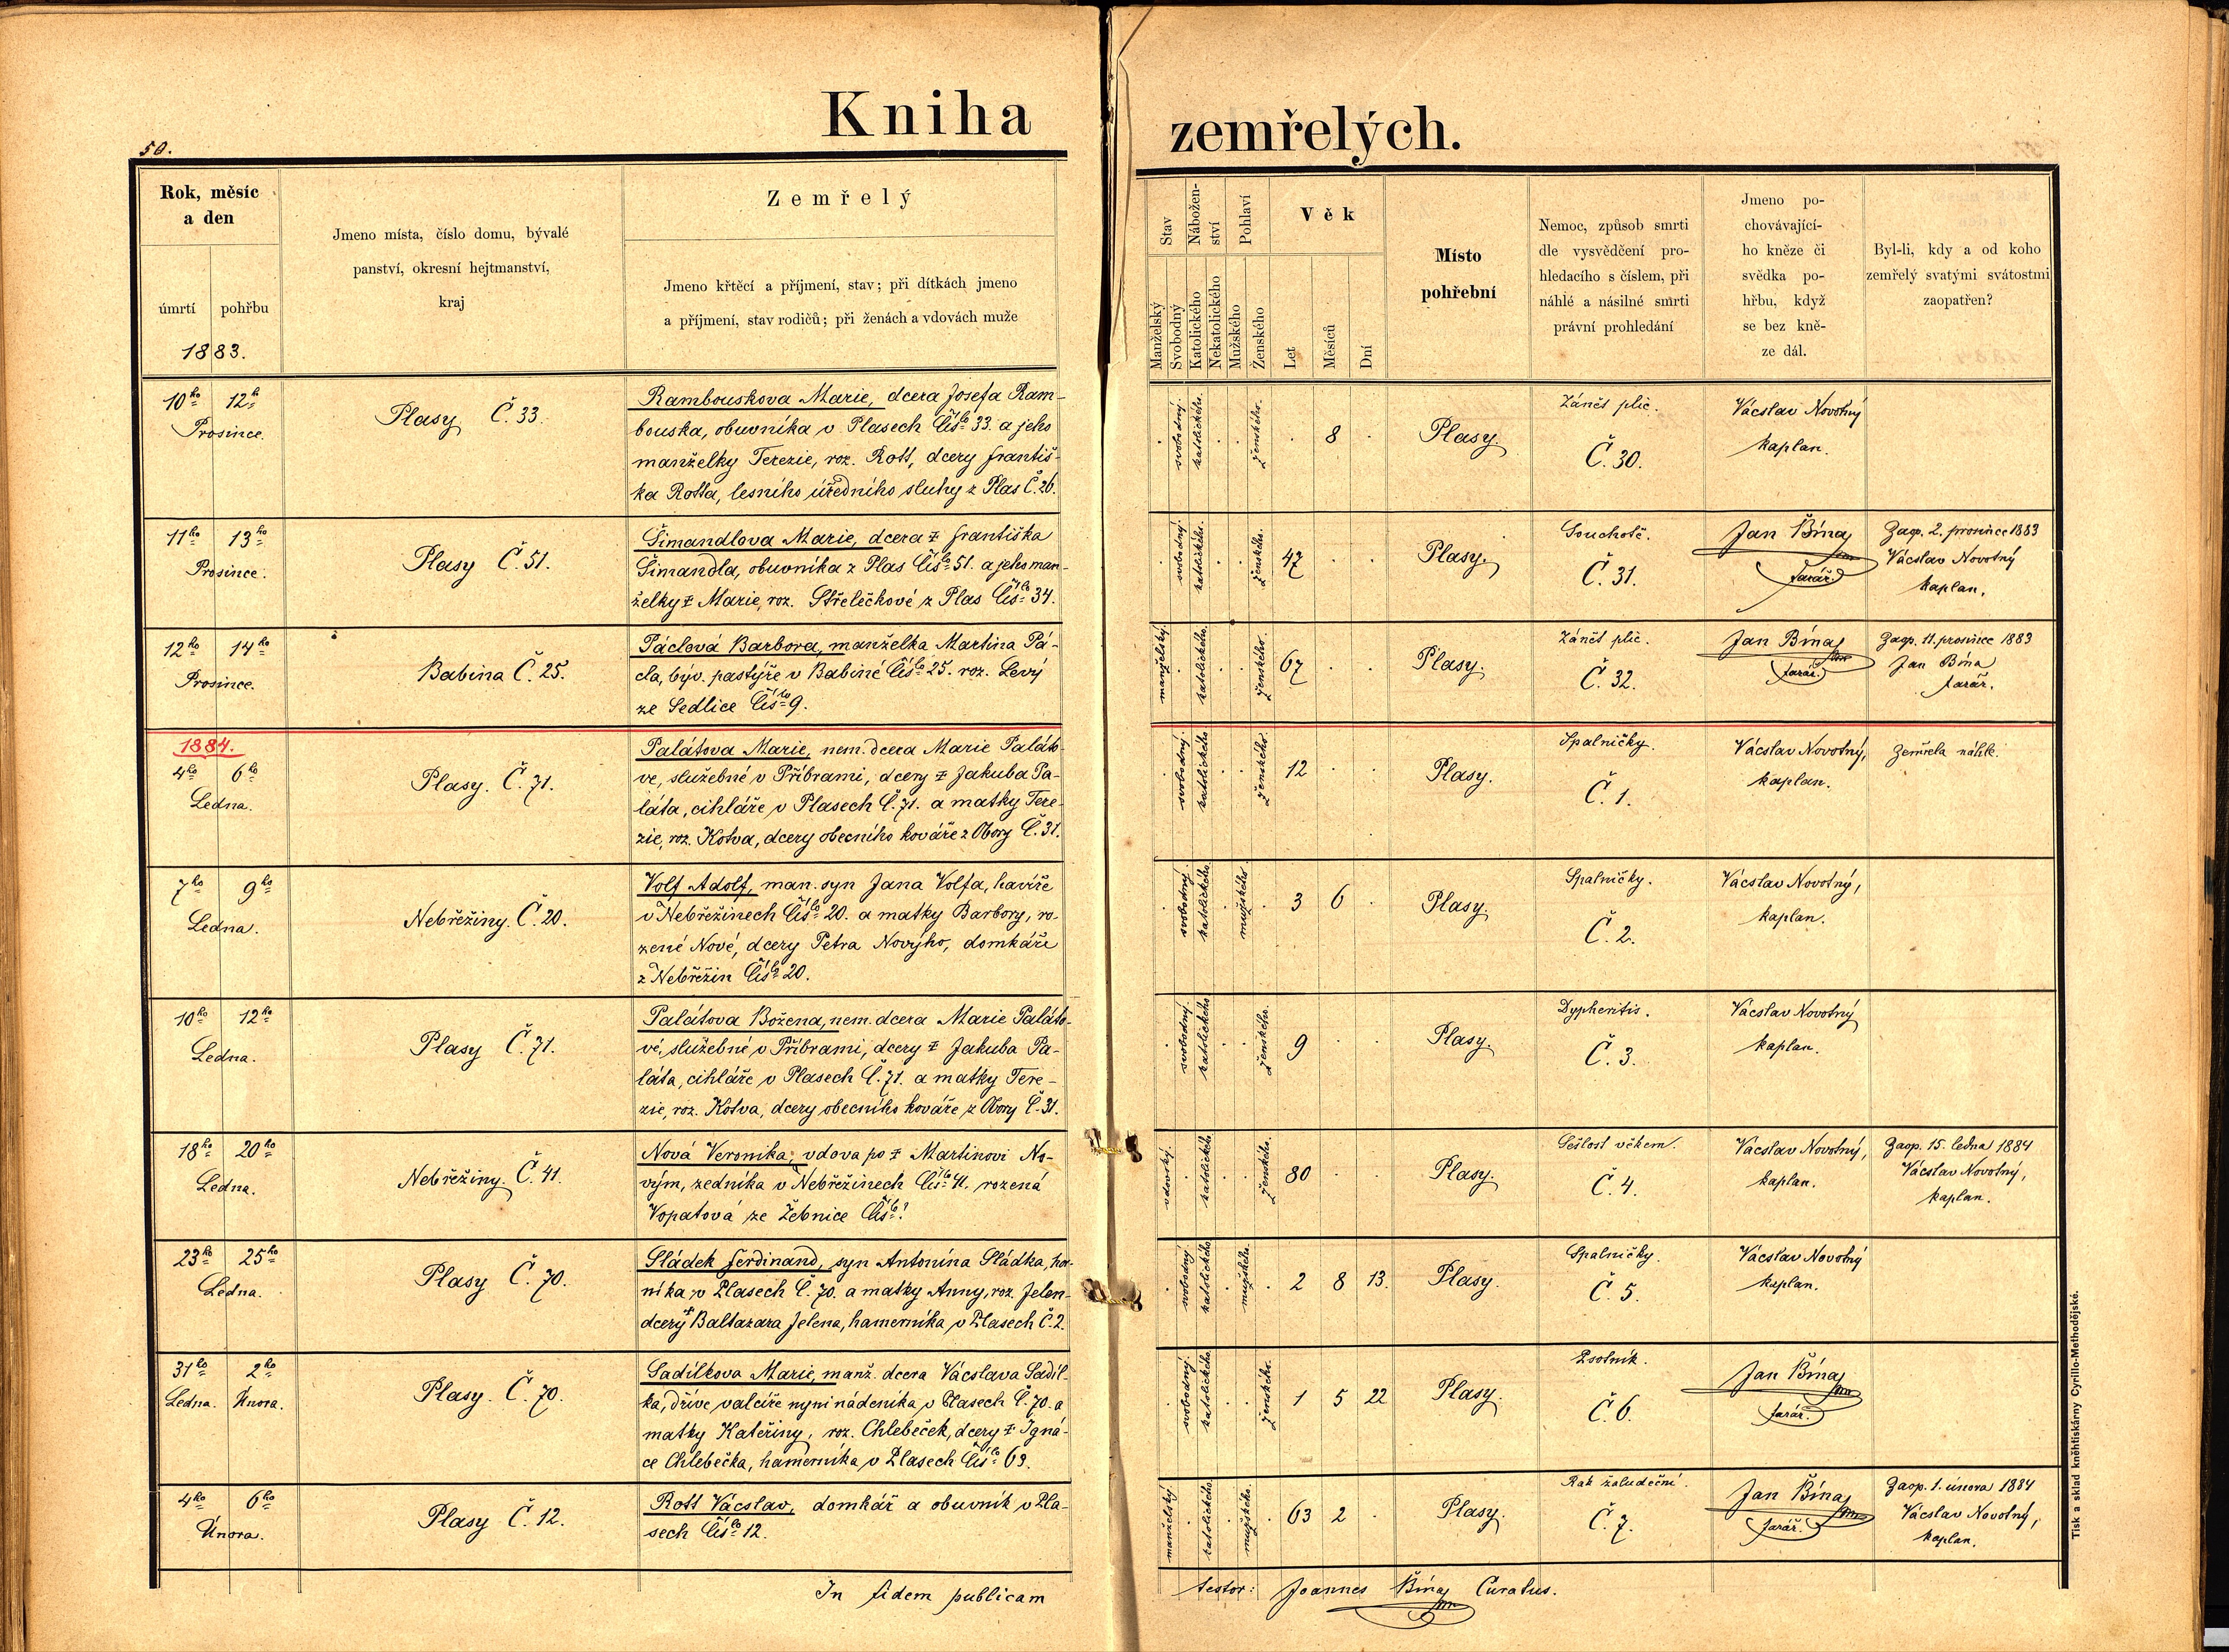 Kniha zemřelých.
50.
Rok, měsíc
a den
úmrtí pohřbu
1883.
Jmeno místa, číslo domu, bývalé
panství, okresní hejtmanství,
kraj
Zemřelý
Jmeno křtěcí a příjmení, stav; při dítkách jmeno
a příjmení, stav rodičů; při ženách a vdovách muže
Stav
Manželský
Svobodný
Nábožen-
ství
Katolického
Nekatolického
Pohlaví
Mužského
Ženského
Věk
Let
Měsíců
Dní
Místo
pohřební
Nemoc, způsob smrti
dle vysvědčení pro-
hledacího s číslem, při
náhlé a násilné smrti
právní prohledání
Jmeno po-
chovávající-
ho kněze či
svědka po-
hřbu, když
se bez kně-
ze dál.
Byl-li, kdy a od koho
zemřelý svatými svátostmi
zaopatřen?
10ho 12h
Prosince.
Plasy Č. 33.
Rambouskova Marie, dcera Josefa Ram-
bouska, obuvníka v Plasech Čislo 33. a jeho
manželky Terezie, roz. Rott, dcery Františ-
ka Rotta, lesního úředního sluhy z Plas Č. 26.
svobodný. katolického. ženského. 8
Plasy.
Zánět plic.
Č. 30.
Vácslav Novotný
kaplan.
11ho 13ho
Prosince.
Plasy Č. 51.
Šimandlova Marie, dcera ‡ Františka
Šimandla, obuvníka z Plas Čislo 51. a jeho man-
želky ‡ Marie, roz. Střelečkové z Plas Čislo 34.
svobodný. katolického. ženského. 47
Plasy.
Souchotě.
Č. 31.
Jan Bína
farář.
Zaop. 2. prosince 1883
Vácslav Novotný
kaplan.
12ho 14ho
Prosince.
Babina Č. 25.
Páclová Barbora, manželka Martina Pá-
cla, býv. pastýře v Babině Čislo 25. roz. Levý
ze Sedlice Čislo 9.
manželský. katolického. ženského. 67
Plasy.
Zánět plic.
Č. 32.
Jan Bína
farář.
Zaop. 11. prosince 1883
Jan Bína
farář.
1884.
4ho 6ho
Ledna.
Plasy. Č. 71.
Palátova Marie, nem. dcera Marie Paláto-
ve, služebné v Příbrami, dcery ‡ Jakuba Pa-
láta, cihláře v Plasech Č. 71. a matky Tere-
zie, roz. Kotva, dcery obecního kováře z Obory Č. 31.
svobodný. katolického ženského. 12
Plasy.
Spalničky.
Č. 1.
Vácslav Novotný,
kaplan.
Zemřela náhle.
7ho 9ho
Ledna.
Nebřežiny. Č. 20.
Volf Adolf, man. syn Jana Volfa, havíře
v Nebřežinech Čislo 20. a matky Barbory, ro-
zené Nové, dcery Petra Novýho, domkáře
z Nebřežin Čislo 20.
svobodný. katolického mužského 3 6
Plasy.
Spalničky.
Č. 2.
Vácslav Novotný,
kaplan.
10ho 12ho
Ledna.
Plasy Č. 71.
Palátova Božena, nem. dcera Marie Paláto-
vé, služebné v Příbrami, dcery ‡ Jakuba Pa-
láta, cihláře v Plasech Č. 71. a matky Tere-
zie, roz. Kotva, dcery obecního kováře z Obory Č. 31.
svobodný. katolického ženského. 9
Plasy.
Dypheritis.
Č. 3.
Vácslav Novotný
kaplan.
18ho 20ho
Ledna.
Nebřežiny. Č. 41.
Nová Veronika, vdova po ‡ Martinovi No-
vým, zedníka v Nebřežinech Čislo 41. rozená
Vopatová ze Žebnice Čislo ?
vdovský. katolického ženského. 80
Plasy.
Sešlost věkem.
Č. 4.
Vácslav Novotný,
kaplan.
Zaop. 15. ledna 1884
Vácslav Novotný,
kaplan.
23ho 25ho
Ledna.
Plasy Č. 70.
Sládek Ferdinand, syn Antonína Sládka, hor-
níka v Plasech Č. 70. a matky Anny, roz. Jelen-
dcery ‡ Baltazara Jelena, hamerníka v Plasech Č. 2.
svobodný. katolického mužského. 2 8 13.
Plasy.
Spalničky.
Č. 5.
Vácslav Novotný
kaplan.
31ho 2ho
Ledna. Února.
Plasy. Č. 70.
Sadílkova Marie, manž. dcera Vácslava Sadíl-
ka, dříve valcíře nyní nádeníka v Plasech Č. 70. a
matky Kateřiny, roz. Chlebeček, dcery ‡ Igná-
ce Chlebečka, hamerníka v Plasech Čislo 69.
svobodný. katolického ženského. 1 5 22
Plasy.
Psotník.
Č. 6.
Jan Bína
farář.
4ho 6ho
Února.
Plasy Č. 12.
Rott Vácslav, domkář a obuvník v Pla-
sech Čislo 12.
manželský katolického mužského. 63 2
Plasy.
Rak žaludeční.
Č. 7.
Jan Bína
farář.
Zaop. 1. února 1884
Vácslav Novotný,
kaplan.
In fidem publicam testor: Joannes Bína Curatus.
Tisk a sklad kněhtiskárny Cyrillo-Methodějské.